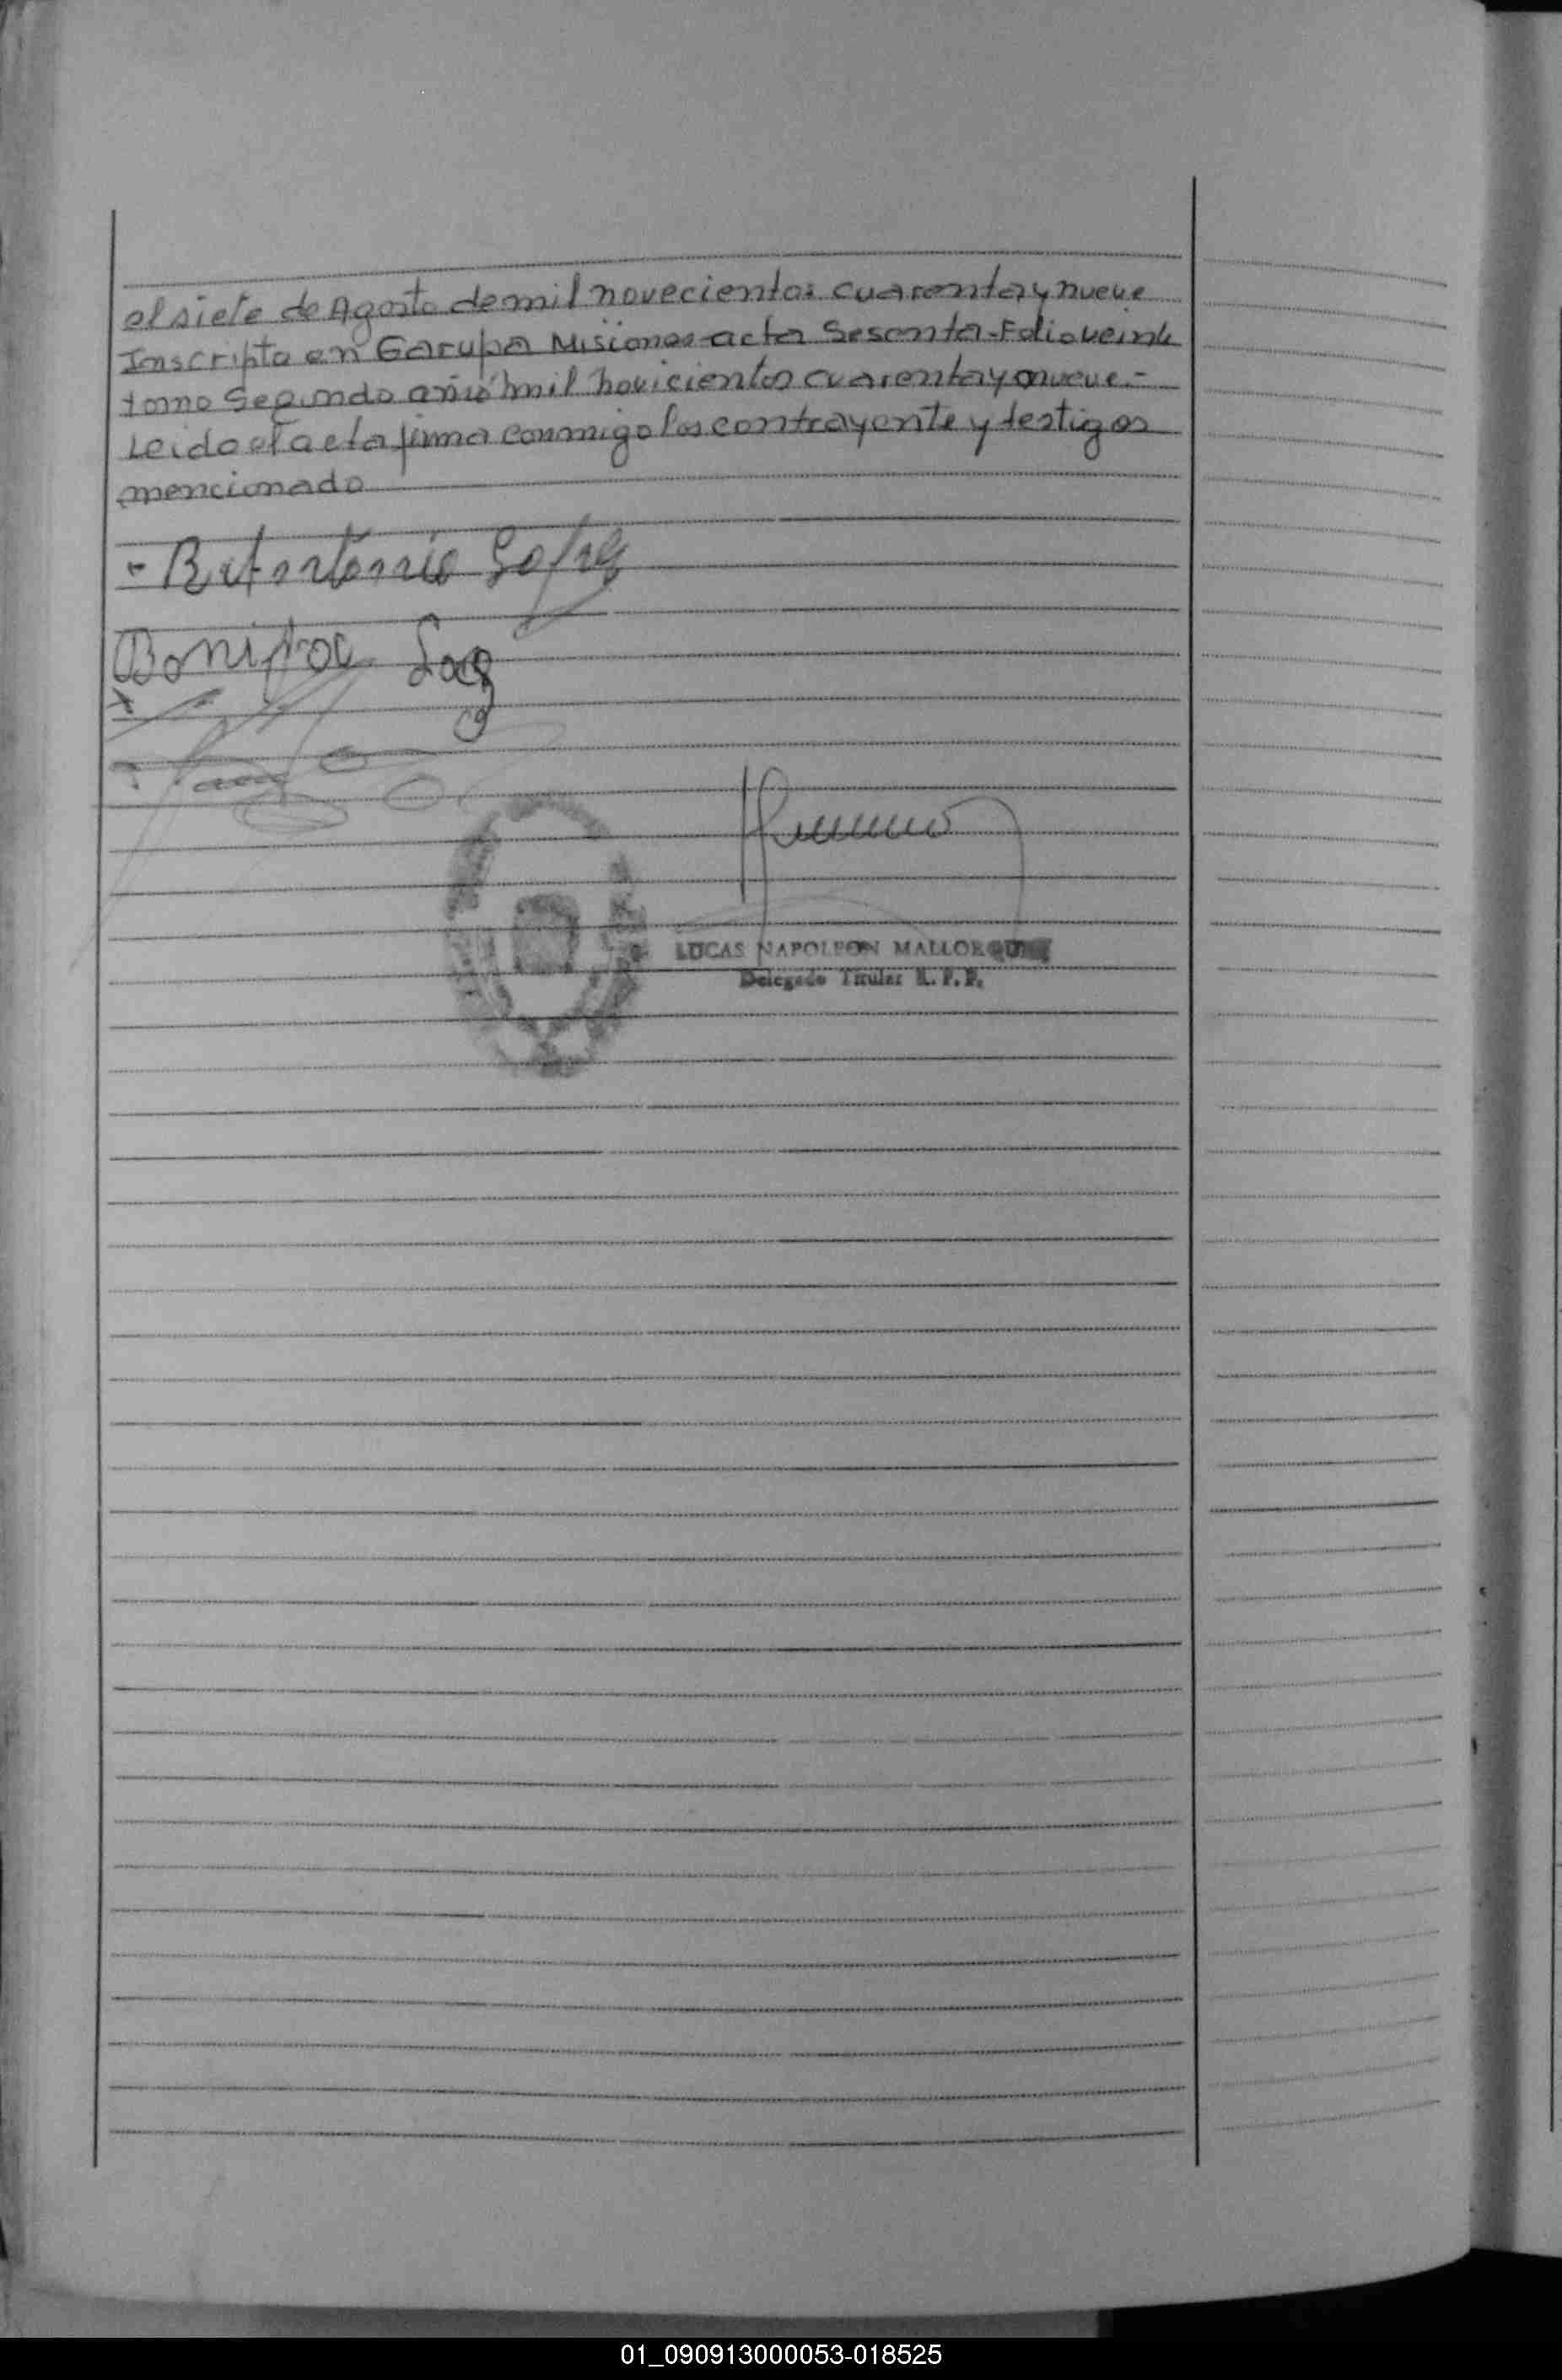 el siete de Agosto de mil novecientos cuarenta y nueve
Inscripta en Garupa Misiones acta Sesenta - Folio veinte
tomo Segundo año mil novicientos cuarenta y nueve.-
Leido el acta firma conmigo los contrayente y testigos
mencionado
Antonio
LUCAS NAPOLEON MALLORQUIN
Delegado Titular R. P. P.
01_090913000053-018525